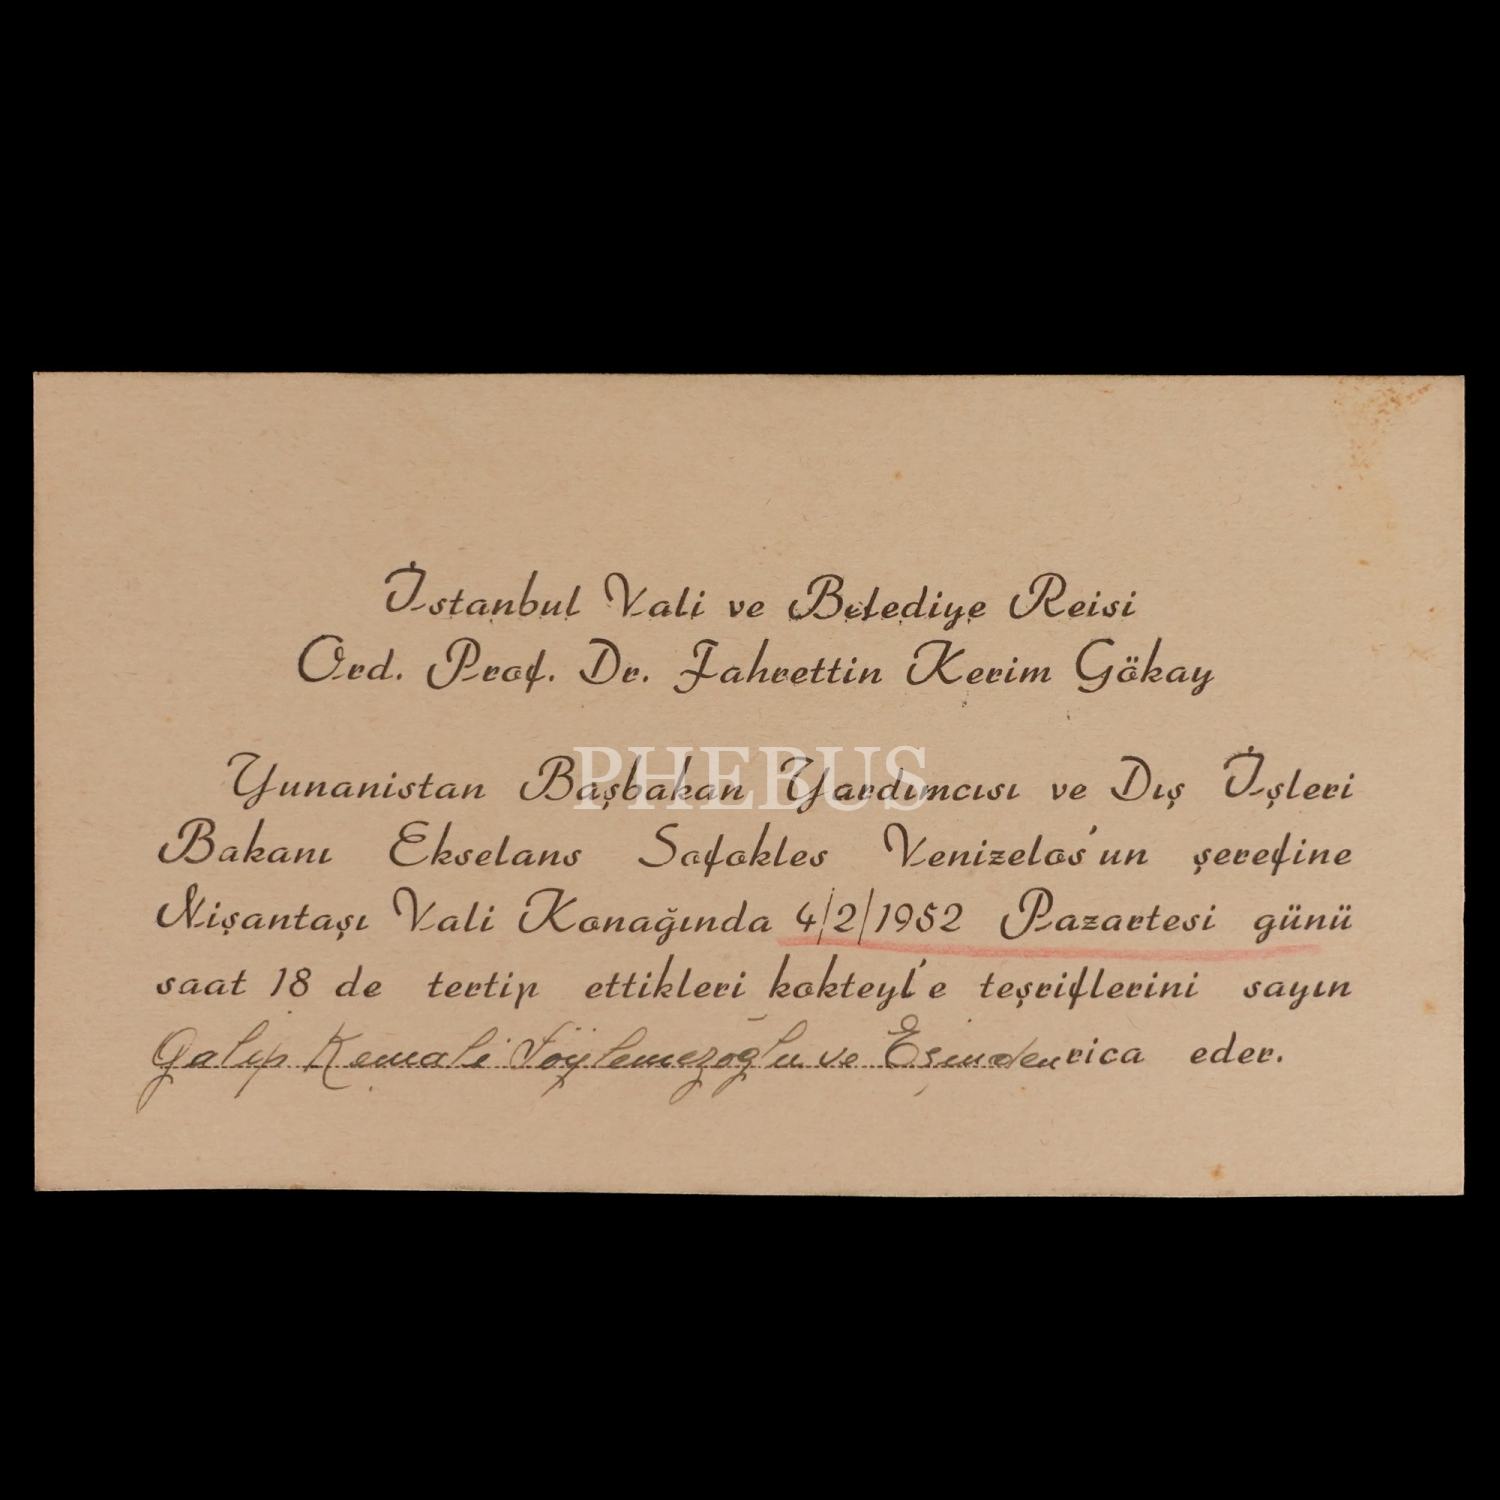 İstanbul Vali ve Belediye Reisi
Ord. Prof. Dr. Fahrettin Kerim Gökay
Yunanistan Başbakan Yardımcısı ve Dış İşleri
Bakanı Ekselans Sofokles Venizelos'un şerefine
Nişantaşı Vali Konağında 4/2/1952 Pazartesi günü
saat 18 de tertip ettikleri kokteyl'e teşriflerini sayın
Galip Kemali Söylemezoğlu ve Eşinden rica eder.
PHEBUS